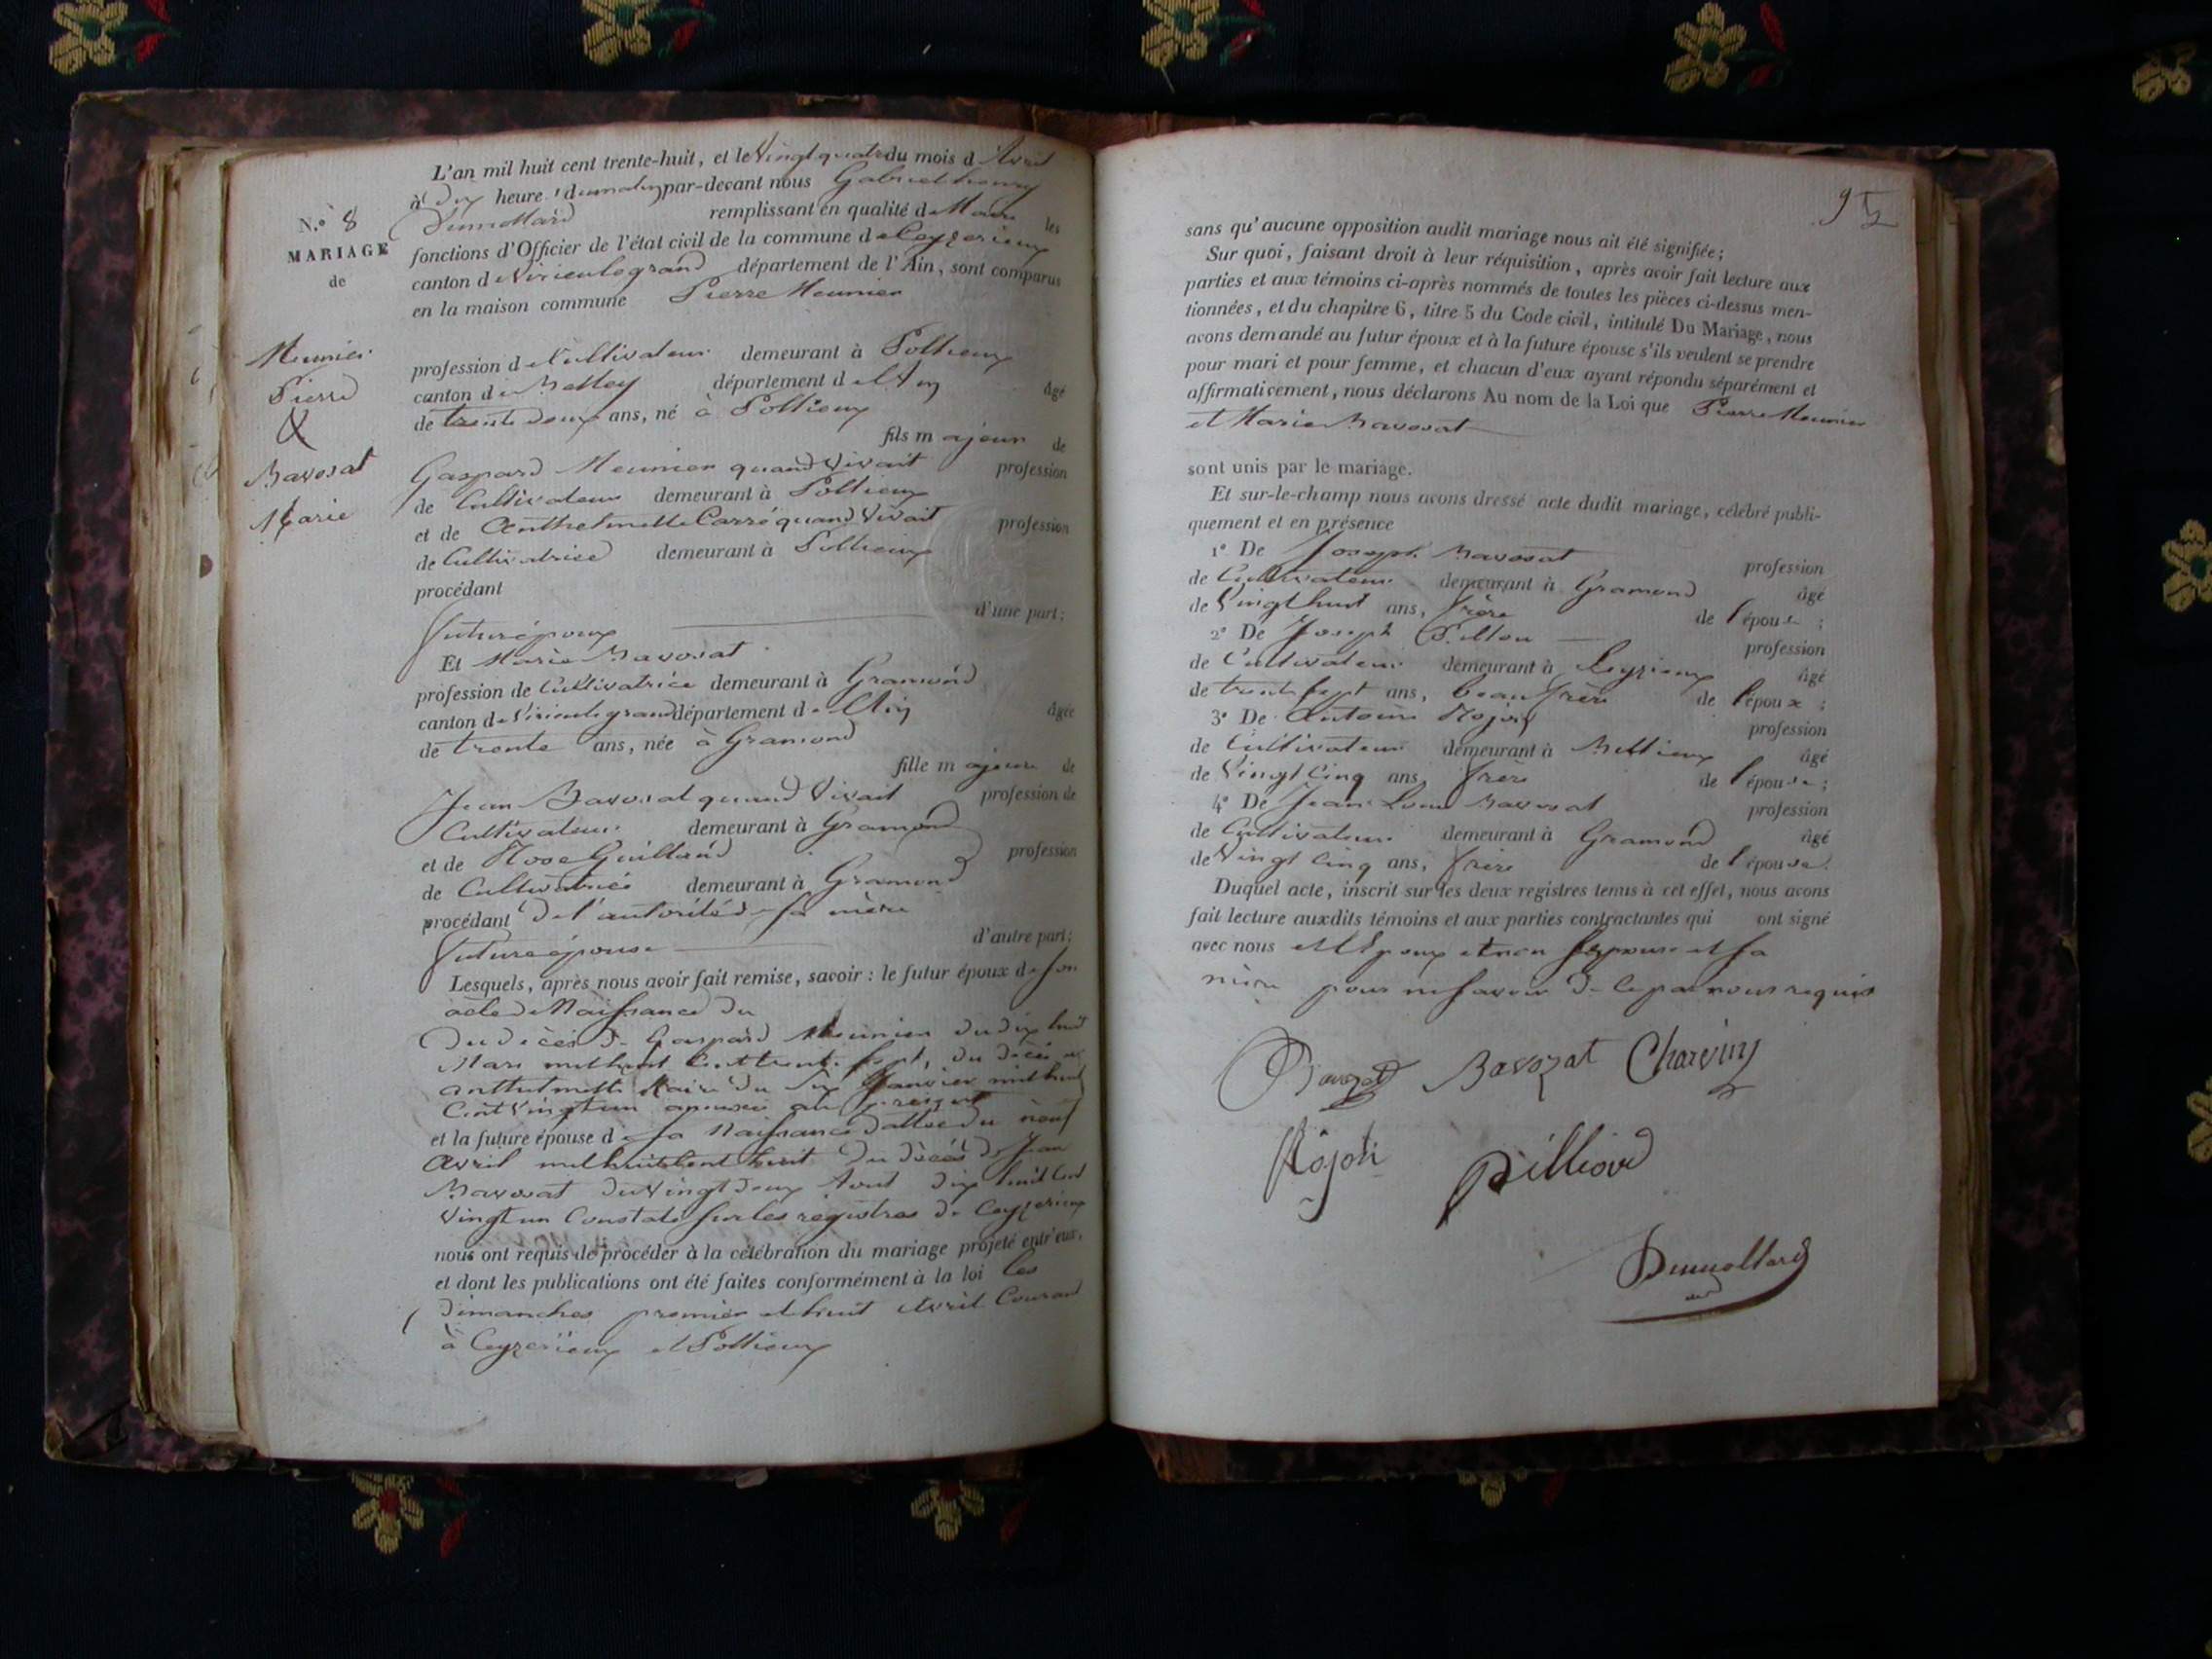 L'an mil huit cent trente-huit, et le Vingt quatre du mois d'Avril
à Dix heures du matin par-devant nous Gabriel henry
Dumollard remplissant en qualité de Maire les
N.° 8
MARIAGE
de
fonctions d'Officier de l'état civil de la commune de Ceyzerieux
canton de Virieulegrand département de l'Ain, sont comparus
en la maison commune Pierre Meunier
Meunier
Pierre
&
Bavosat
Marie
profession de Cultivateur demeurant à Pollieux
canton de Belley département de l'Ain âgé
de trente deux ans, né à Pollieux
fils majeur de
Gaspard Meunier quand Vivait profession
de Cultivateur demeurant à Pollieux
et de Anthelmette Carré quand Vivait profession
de Cultivatrice demeurant à Pollieux
procédant
futur époux d'une part;
Et Marie Bavosat
profession de Cultivatrice demeurant à Gramond
canton de Virieulegrand département de l'Ain âgée
de trente ans, née à Gramond
fille majeure de
Jean Bavosat quand Vivait profession de
Cultivateur demeurant à Gramond
et de Rose Guilland profession
de Cultivatrice demeurant à Gramond
procédant de l'autorité de sa mère
future épouse d'autre part;
Lesquels, après nous avoir fait remise, savoir : le futur époux de son
acte de Naissance du
Du décès de Gaspard Meunier du dix huit
Mars mil huit Cent trente sept, du décès
anthelmette du six Janvier mil huit
Cent Vingt un
et la future épouse de sa Naissance datée du neuf
Avril mil huit Cent huit Du décès de Jean
Bavosat du Vingt deux Aout dix huit Cent
Vingt un Constaté sur les registres de Ceyzerieux
nous ont requis de procéder à la célébration du mariage projeté entr'eux,
et dont les publications ont été faites conformément à la loi les
Dimanches premier et huit Avril Courant
à Ceyzerieux et Pollieux
95
sans qu'aucune opposition audit mariage nous ait été signifiée;
Sur quoi, faisant droit à leur réquisition, après avoir fait lecture aux
parties et aux témoins ci-après nommés de toutes les pièces ci-dessus men-
tionnées, et du chapitre 6, titre 5 du Code civil, intitulé Du Mariage, nous
avons demandé au futur époux et à la future épouse s'ils veulent se prendre
pour mari et pour femme, et chacun d'eux ayant répondu séparément et
affirmativement, nous déclarons Au nom de la Loi que Pierre Meunier
et Marie Bavosat
sont unis par le mariage.
Et sur-le-champ nous avons dressé acte dudit mariage, célébré publi-
quement et en présence
1° De Joseph Bavosat profession
de Cultivateur demeurant à Gramond âgé
de Vingt huit ans, frère de l'épouse;
2° De Joseph profession
de Cultivateur demeurant à âgé
de trente sept ans, beau frère de l'époux;
3° De Antoine Rojon profession
de Cultivateur demeurant à âgé
de Vingt Cinq ans, frère de l'épouse;
4° De Jean Bavosat profession
de Cultivateur demeurant à Gramond âgé
de Vingt Cinq ans, frère de l'épouse.
Duquel acte, inscrit sur les deux registres tenus à cet effet, nous avons
fait lecture auxdits témoins et aux parties contractantes qui ont signé
avec nous et l'Epoux et non l'epouse et sa
mère pour ne savoir de ce par nous requis
Bavozat Bavozat Charvin
Rojon pilliond
Dumollard